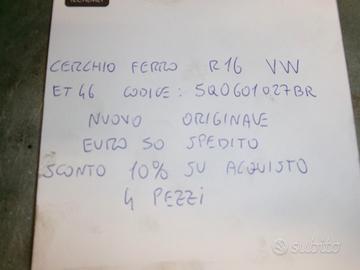 CERCHIO FERRO R16 VW
ET 46 CODICE: 5Q0601027BR
NUOVO ORIGINALE
EURO 50 SPEDITO
SCONTO 10% SU ACQUISTO
4 PEZZI
subito